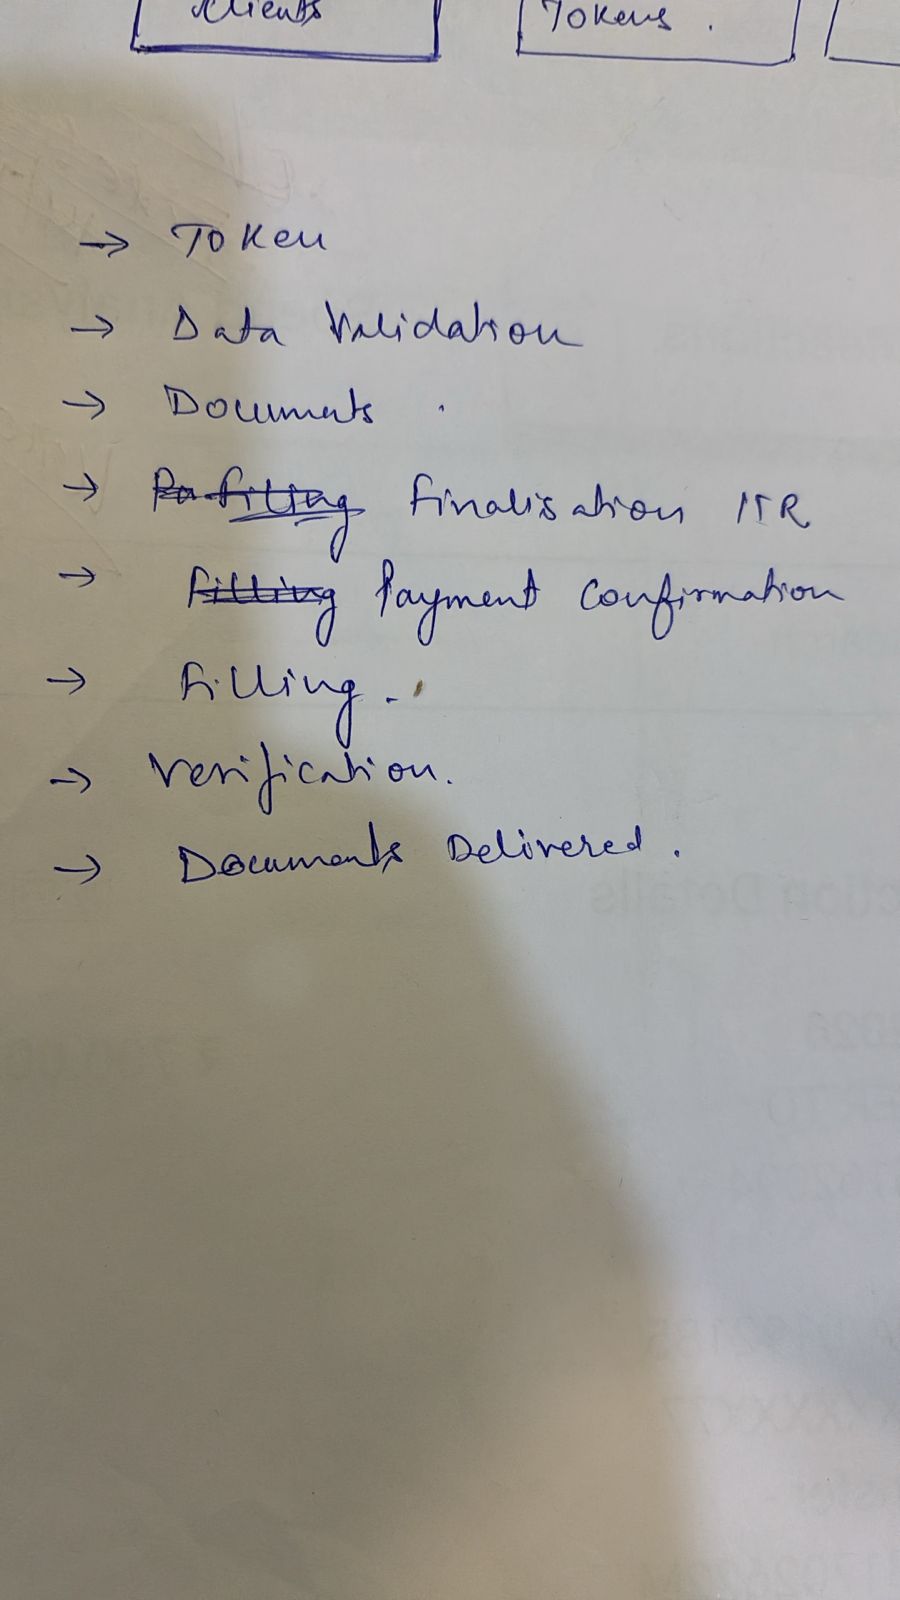 Clients
Tokens.
→ Token
→ Data Validation
→ Documents
→ Finalisation ITR
→ Payment Confirmation
→ Filling.
→ Verification.
→ Documents Delivered.